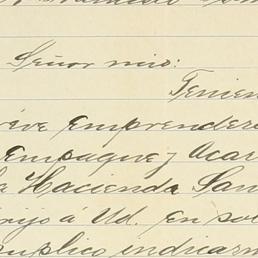 Señor mio:
Tenien
breve emprender
empaque y acar
la Hacienda San
rijo á Ud. en sol
suplico indicarm